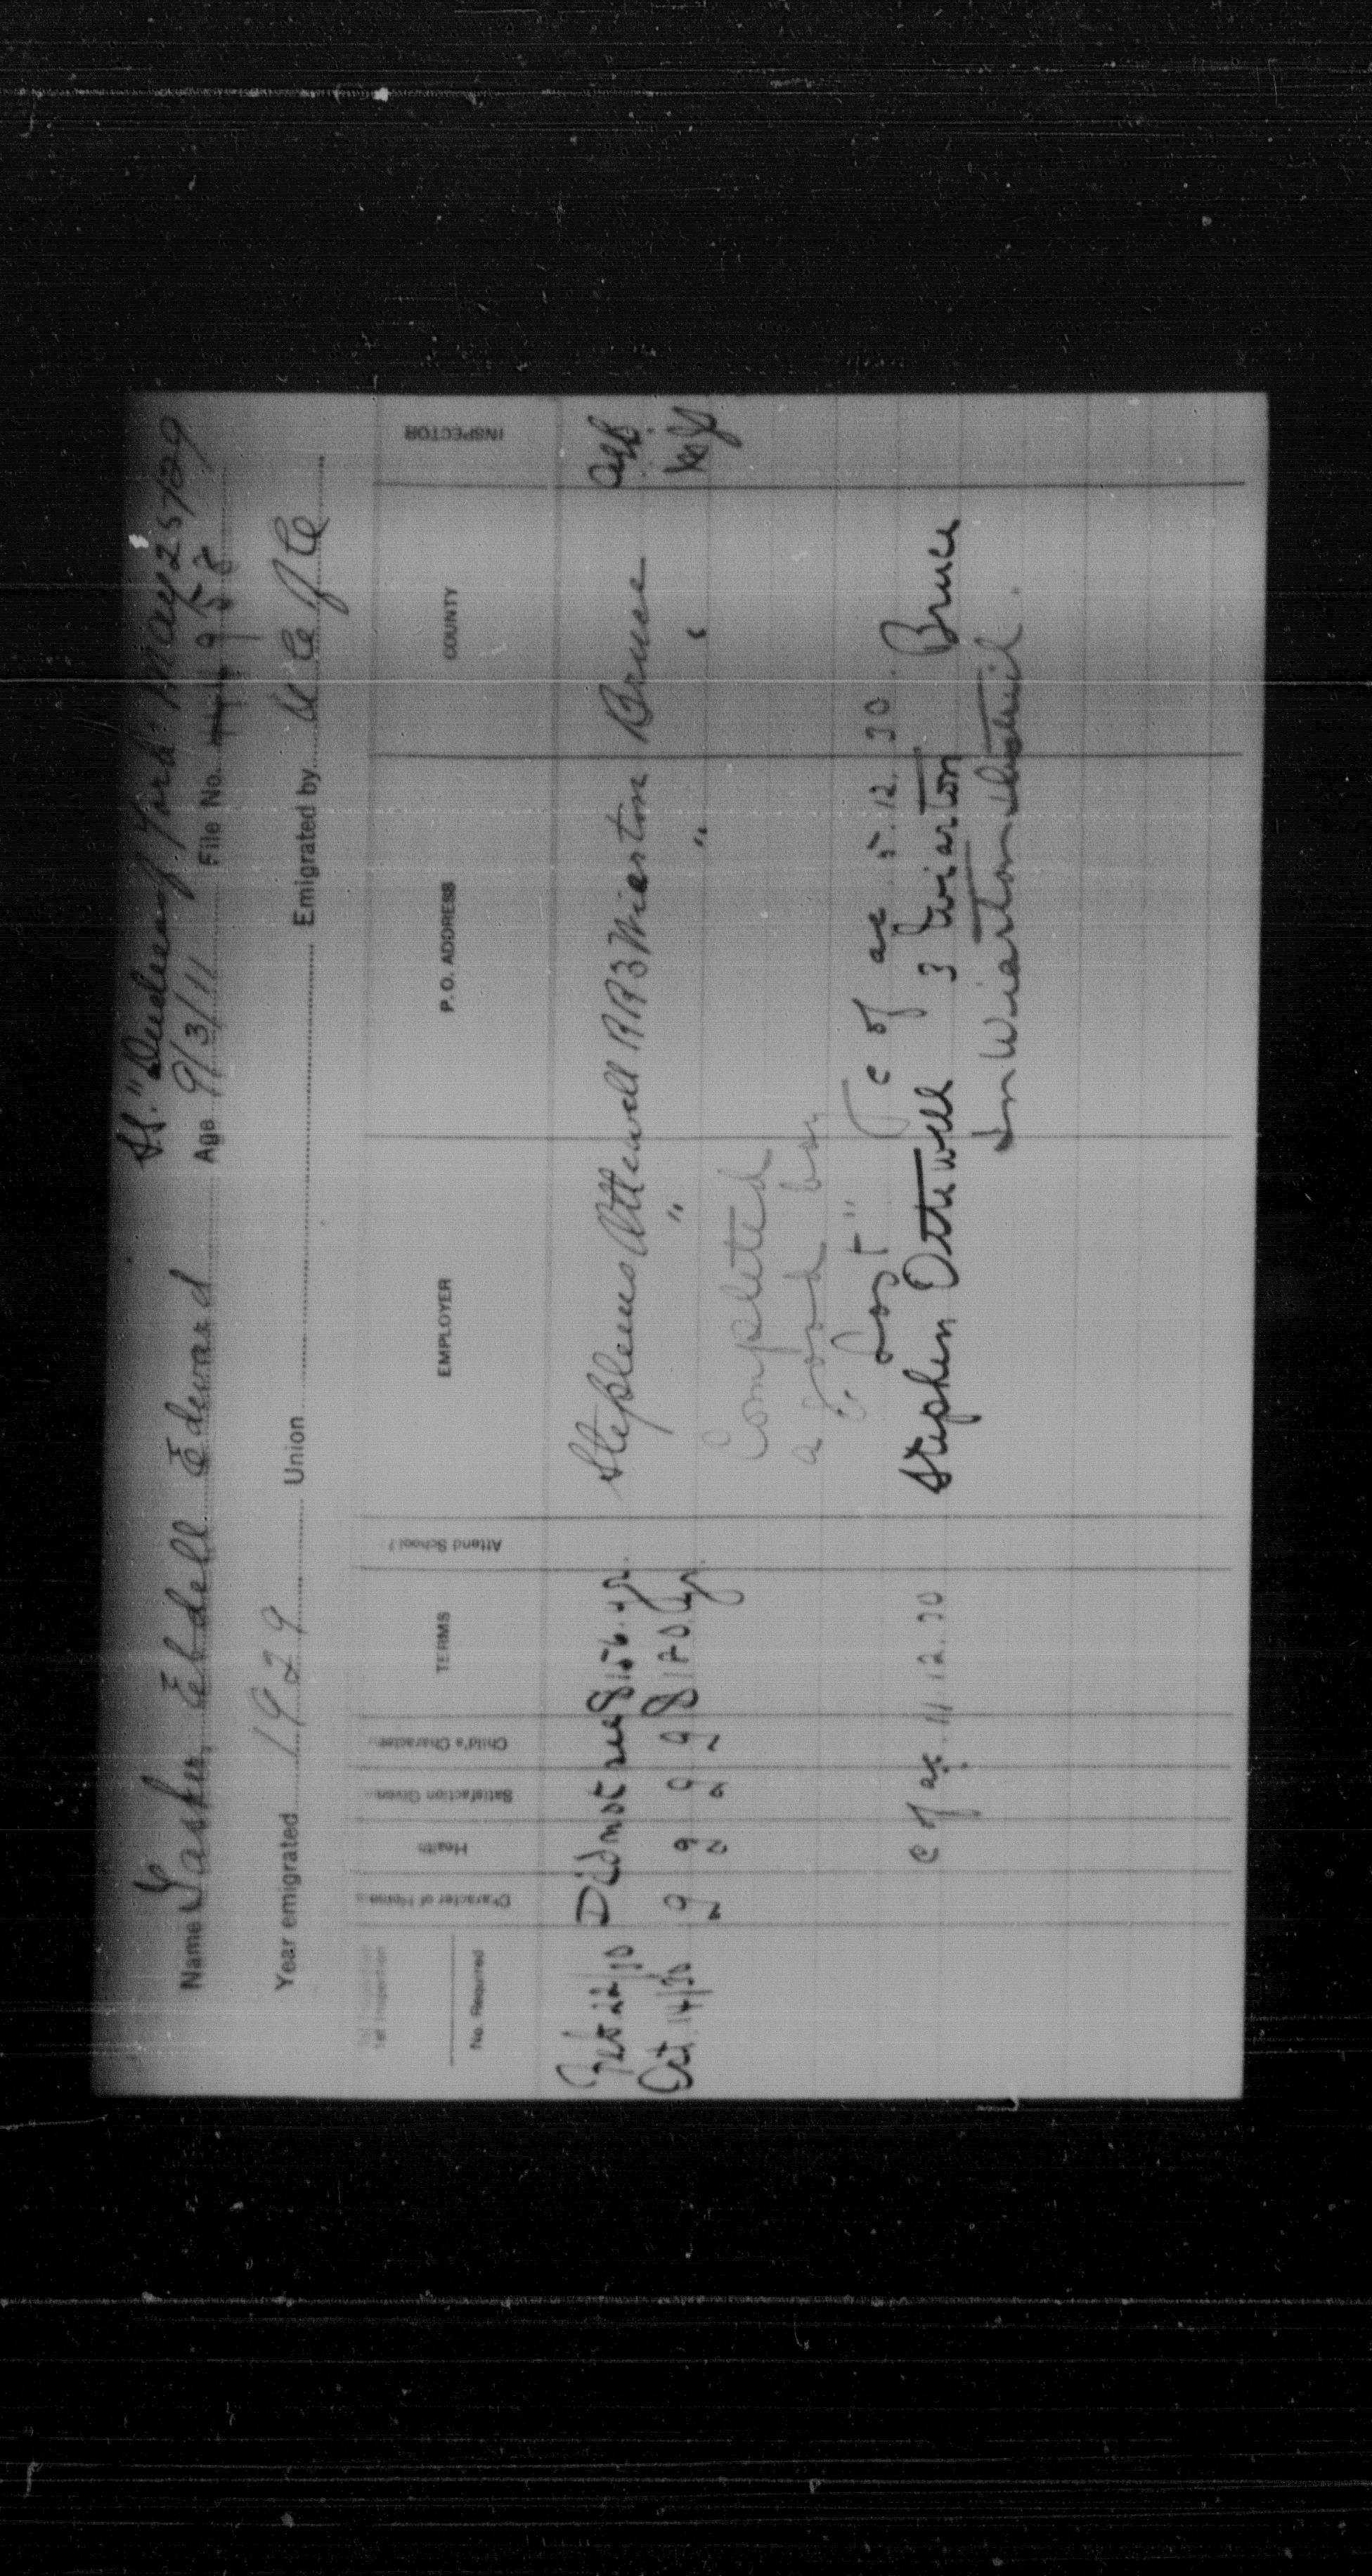 SS. "Duchess of York" May 25/29
Name Lasker, Ebdell Edward Age 9/3/11 File No.
Year emigrated 1929 Union Emigrated by
1st Inspection
No. Required
Character of Home
Health
Satisfaction Given
Child's Character
TERMS
Attend School?
EMPLOYER
P. O. ADDRESS
COUNTY
INSPECTOR
Feb 22/30 Did not see $156. yr. Stephens Ottewell RR3 Wiarton Bruce
Oct. 14/30 g g g g $120. yr. " " "
Completed
a good boy
"Lost" C of ac 5.12.30.
C of ac. 11.12.30 Stephen Ottewell 3 Wiarton Bruce
In Wiarton